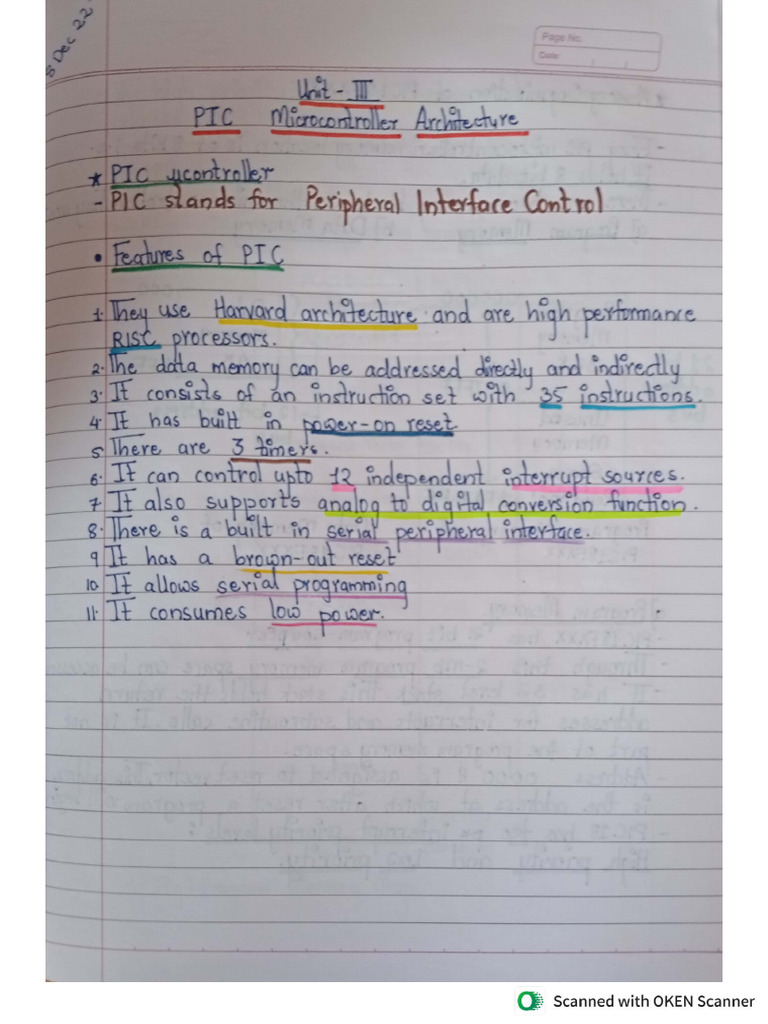 8 Dec 22
Page No.
Date:
Unit - III
PIC Microcontroller Architecture
* PIC µcontroller
- PIC stands for Peripheral Interface Control
• Features of PIC
1. They use Harvard architecture and are high performance
RISC processors.
2. The data memory can be addressed directly and indirectly
3. It consists of an instruction set with 35 instructions.
4. It has built in power-on reset
5. There are 3 timers.
6. It can control upto 12 independent interrupt sources.
7. It also supports analog to digital conversion function.
8. There is a built in serial peripheral interface.
9 It has a brown-out reset
10. It allows serial programming
11. It consumes low power.
Scanned with OKEN Scanner